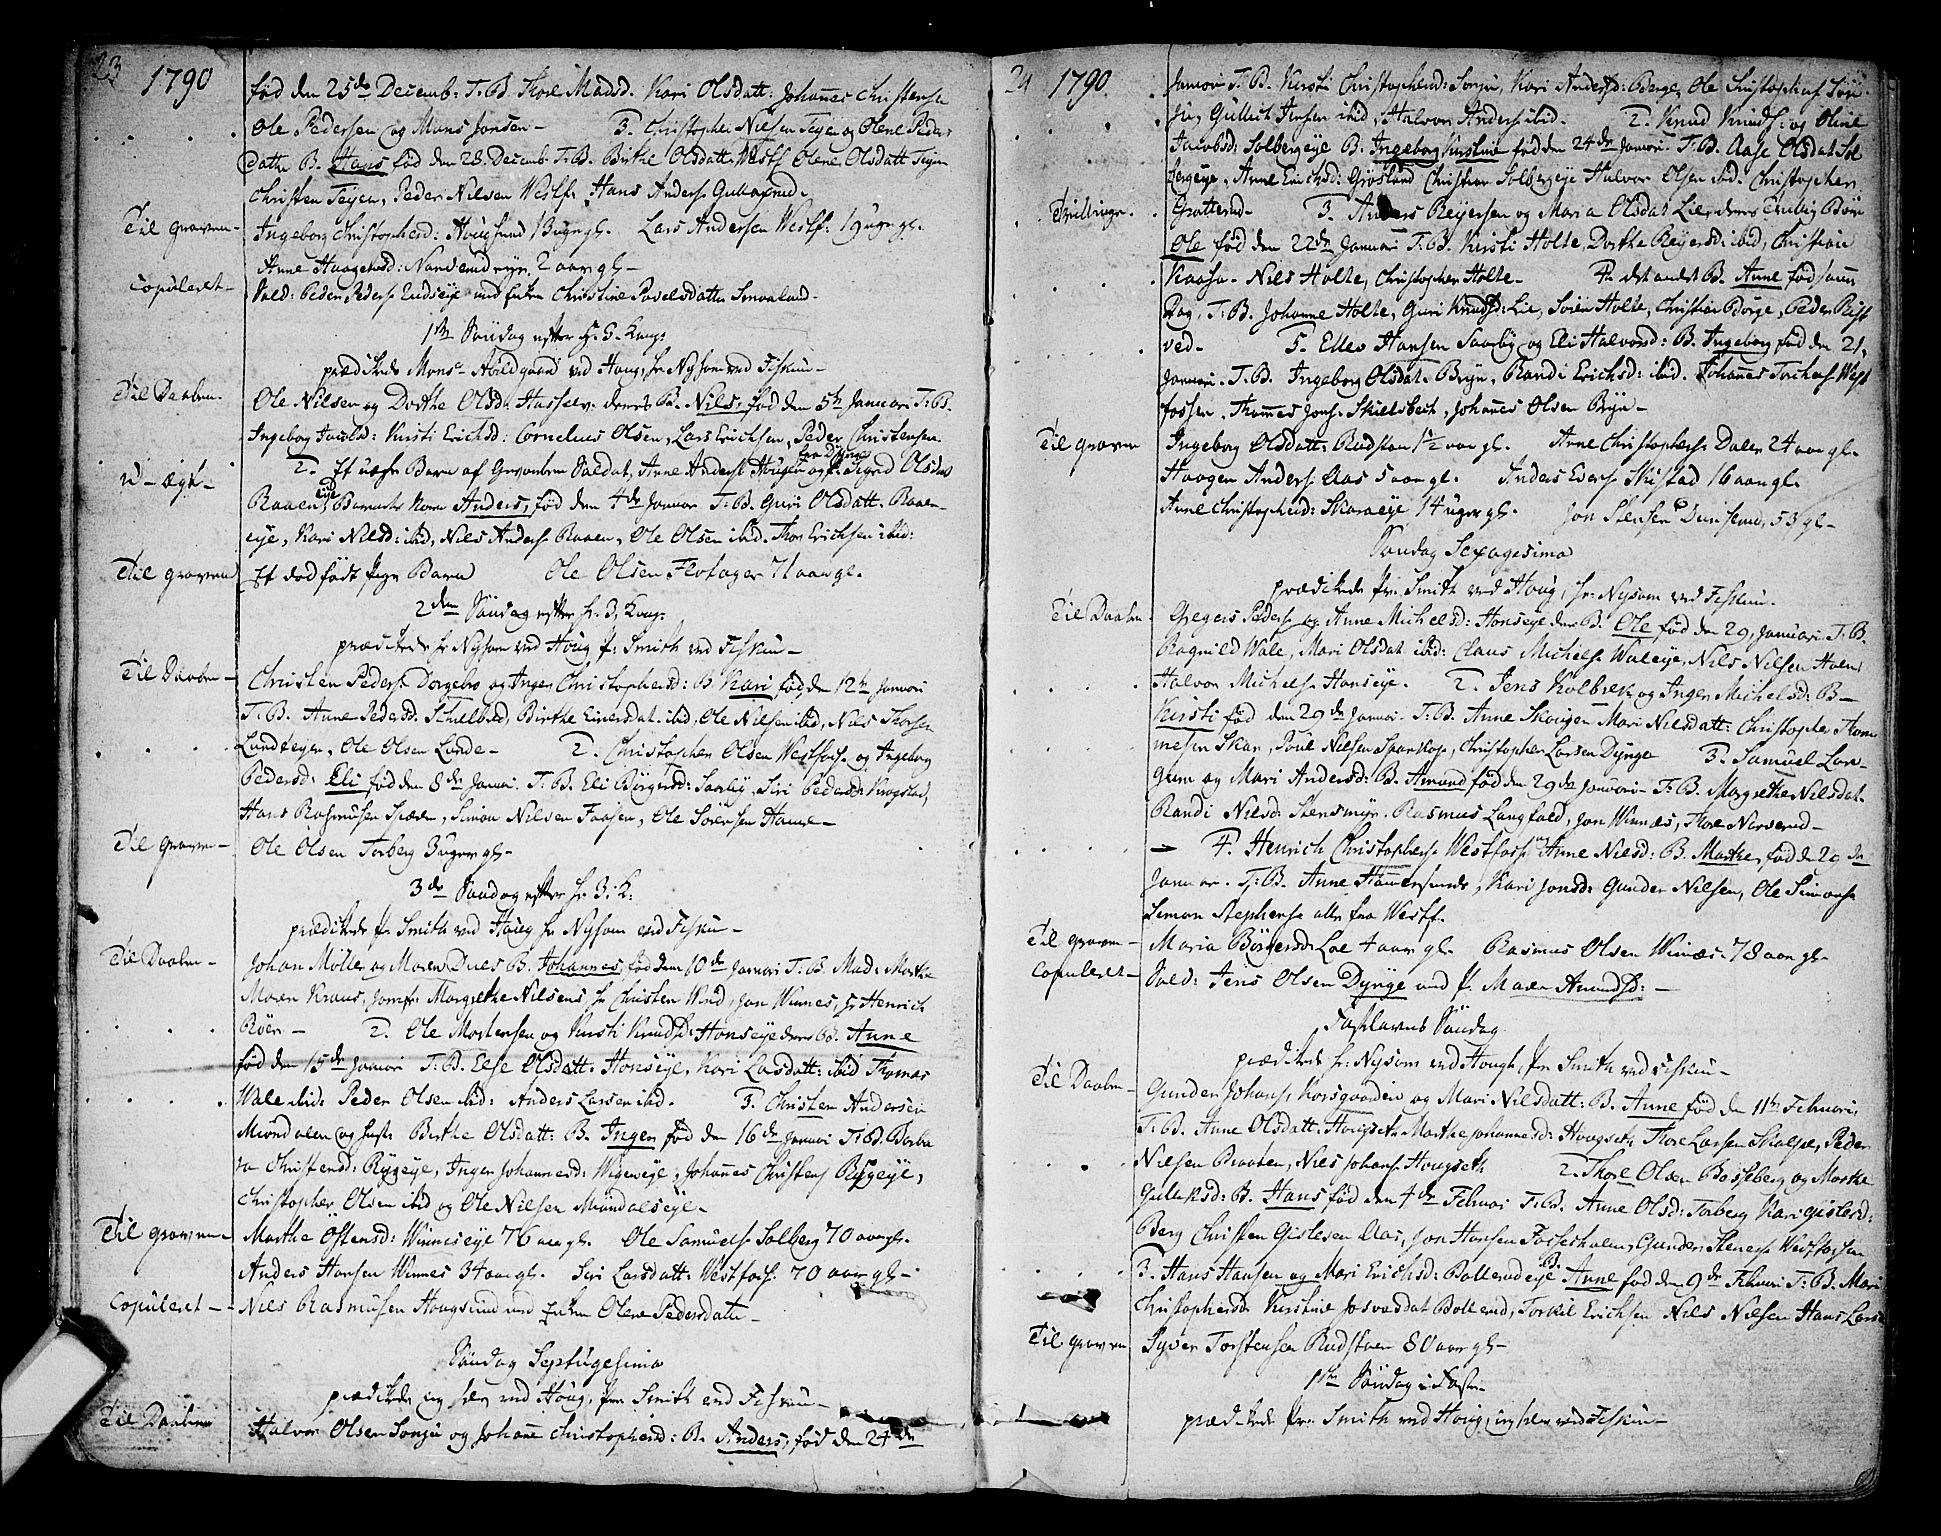 23 1790
fød den 25de Decemb: T. B. Thore Madsd. Kari Olsdatt: Johannes Christense
Ole Pedersen og Mons Jonsen — 3. Christopher Nielsen Teyen og Olene Peders
datte B. Hans fød den 28. Decemb: T. B. Birthe Olsdatt. Westf. Olene Olsdatt Teyen
Christen Teyen, Peder Nilsen Westf. Hans Anders.
Til graven — Ingeborg Christophersd: Hougsund 13 uger gl. Lars Andersen Westf: 19 uger gl.
Anne Haagensd: 2 aar gl —
Copuleret — Sold: Peder Peders. Endseye med Enken Christine Povelsdatter Smorlund.
1ste Söndag efter H. 3. Kong:
prædikede Mons. Abildgaard ved Houg, hr Nysom ved Fiskum —
Til Daaben. Ole Nilsen og Dorthe Olsd: Hasselv. deres B. Nils, fød den 5te Januari T: B.
Ingeborg Jacobsd: Kirsti Erichsd: Cornelius Olsen, Lars Erichsen, Peder Christensen
u — ægte — 2. Et uægte Barn af Soldat, Anne Anders. Hougen fra Dynge og p: Sigrid Olsdat
Raaeneye, Barnets Navn Anders, fød den 4de Januar T: B. Guri Olsdatt. Raaen
eye, Kari Nilsd: ibid, Nils Anders. Raaen, Ole Olsen ibid. Thor Erichsen ibid:
Til graven Et dødfødt Pige Barn Ole Olsen Flotager 71 aar gl.
2den Söndag efter H. 3. Kong:
prædikede hr Nysom ved Houg p: Smith ved Fiskum —
Til Daaben — Christen Peders. Dorgebro og Inger Christophersd: B. Kari, fød den 12te Januari
T. B. Anne Pedersd. Birthe Einersdat. ibid, Ole Nilsen ibid, Nils Thorsen
Lundteyen, Ole Olsen Lunde — 2. Christopher Olsen Westfos. og Ingeborg
Pedersd: Eli fød den 8de Januari. T. B. Eli Börgersd: Saasby, Siri Pedersd: Krogstad,
Hans Rasmusen Skiære, Simon Nilsen Faasen, Ole Sörensen Hame —
Til graven — Ole Olsen Torberg 3 uger gl —
3de Söndag efter H. 3. K:
prædikede p: Smith ved Houg hr Nysom ved Fiskum —
Til Daaben — Johan Möller og Maren Dues B. Johannes, fød den 10de Januari T. B. Mad: Marthe
Maren Kraus, Jomfr: Margrethe Nilsens hr Christen Wind, Jon Winnes, hr Henrich
Röer — 2. Ole Mortensen og Kirsti Knudsd: Honseye deres B. Anne
fød den 15de Januari T. B. Else Olsdatt. Honseye, Kari Larsdatt: ibid Thomas
Wale ibid: Peder Olsen ibid: Anders Larsen ibid. 3. Christen Andersen
Miöndalen og hust: Berthe Olsdatt: B. Inger fød den 16de Januari T: B. Barba
ra Christensd: Rygeye, Inger Johannesd: Johannes Christens. Rygeye,
Christopher Olsen ibid og Ole Nilsen Miöndalseye —
Til graven — Marthe Östensd: Winneseye 76 aar gl. Ole Samuels. Solberg 70 aar gl.
Anders Hansen Winnes 34 aar gl. Siri Larsdatt: Westfoss. 70 aar gl —
Copuleret — Nils Rasmusen Hougsund med Enken Olene Pedersdatter —
Söndag Septugesima
prædikede ieg her ved Houg, p: Smith ved Fiskum —
Til Daaben Halvor Olsen Sonju og Johanne Christophersd: B. Anders, fød den 24de
24 1790.
Januari T. B. Kirsti Christophersd: Sonju, Kari Andersd: Berge, Ole Christophers.
Gullich Jensen ibid, Halvor Anders. ibid. 2. Knud Knuds. og Oline
Jacobsd: Solbergeye B. Ingeborg Kirstine fød den 24de Januari T. B. Aase Olsdat Sol
bergeye, Anne Erichsd: Grosland Christian Solbergeye Halvor Olsen ibid. Christopher
Tvillinge. Grotterud — 3. Anders Reyersen og Maria Olsdat Lie, deres Tvilling Börn
Ole fød den 22de Januari T. B. Kirsti Holte, Dorthe Reyersd: ibid, Christian
Kaasa — Nils Holte, Christopher Holte — 4. det andet B. Anne fød samme
Dag. T: B. Johanne Holte, Guri Knudsd: Lie, Soren Holte, Christen Borge, Peder Rist
ved — 5. Ellev Hansen Saasby og Eli Halvorsd: B. Ingeborg fød den 21.
Januari. T. B. Ingeborg Olsdat. Bryn, Randi Erichsd: ibid. Johannes Torchels. West
fossen. Thommes Jons. Skiellsbech, Johannes Olsen Bryn —
Til graven Ingeborg Olsdatt: Rudstøen 1½ aar gl. Arne Christophers. Dalen 24 aar gl —
Haagen Anders. Aas 5 aar gl. Anders Evers. Skistad 16 aar gl.
Anne Christophersd: Skareeye 14 uger gl. Jon Stensen Dunserud, 53 gl —
Söndag Sexagesima
prædikede p: Smith ved Houg, hr: Nysom ved Fiskum.
Til Daaben — Gregers Peders. og Anne Michelsd: Honseye deres B. Ole fød den 29. Januari T. B.
Ragnild Wale, Mari Olsdat ibid: Claus Michels. Waleye, Nils Nilsen Holm
Halvor Michels. Honseye. 2. Jens Kolbræk og Inger Michelsd: B —
Kirsti fød den 29de Januari T. B. Anne Skougen Mari Nilsdatt: Christopher Thom
mesen Skar, Poul Nilsen Sparkop, Christopher Larsen Dynge 3. Samuel Lan-
gum og Mari Andersd: B. Amund fød den 29de Januari — T. B. Margrethe Nilsdat.
Randi Nilsd. Stensmyr. Rasmus Langfald, Jon Winnæs, Thore Narverud —
— 4. Henrich Christophers. Westfoss. Anne Nielsd: B. Marthe, fød d 29de
Januar. T. B. Anne Hammersunde, Kari Jonsd: Gunder Nilsen, Ole Simonse
Simon Stephense alle fra Westf.
Til graven — Maria Börresd: Loe 4 aar gl. Rasmus Olsen Winnæs. 78 aar gl —
Copuleret — Sold: Jens Olsen Dynge med p: Maren Amundsd: —
Fastelavns Söndag
prædikede hr. Nysom ved Hough, p: Smith ved Fiskum —
Til Daaben — Gunder Johans. Korsgaarden og Mari Nilsdatt: B. Anne fød den 11te Februari,
T. B. Anne Olsdatt: Hougseth Marthe Johannesd: Hougseth Thore Larsen Skalstad, Peder
Nielsen Braaten, Nils Johans. Hougseth 2. Thore Olsen Bosseberg og Marthe
Gulichsd: B. Hans fød den 4de Februari T. B. Anne Olsd: Torberg Kari Gislesd:
Berg Christen Gislesen Aas, Jon Hansen Fosseholm, Gunder Stenes. Westfossen
3. Hans Hansen og Mari Erichsd: Bollerudeye B. Anne fød den 9de Februari T. B. Mari
Christophersd. Kirstine Bollerud, Torkil Erichsen Nils Nilsen Hans Lars
Til graven Syver Torstensen Rudstøen 80 aar gl —
1ste Söndag i Faste
prædikede p: Smith ved Houg, ieg her ved Fiskum —